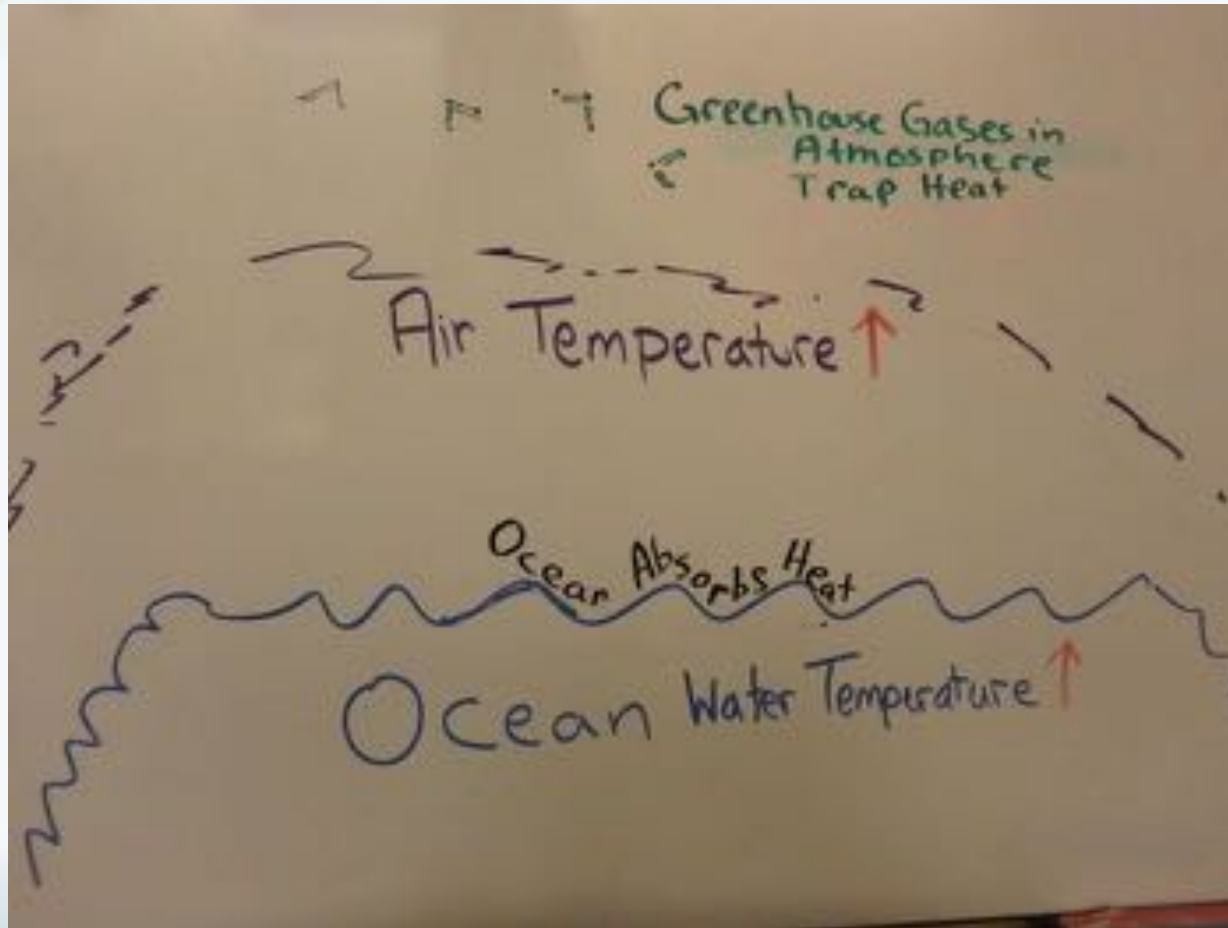 Greenhouse Gases in
Atmosphere
Trap Heat
Air Temperature ↑
Ocean Absorbs Heat
Ocean Water Temperature ↑